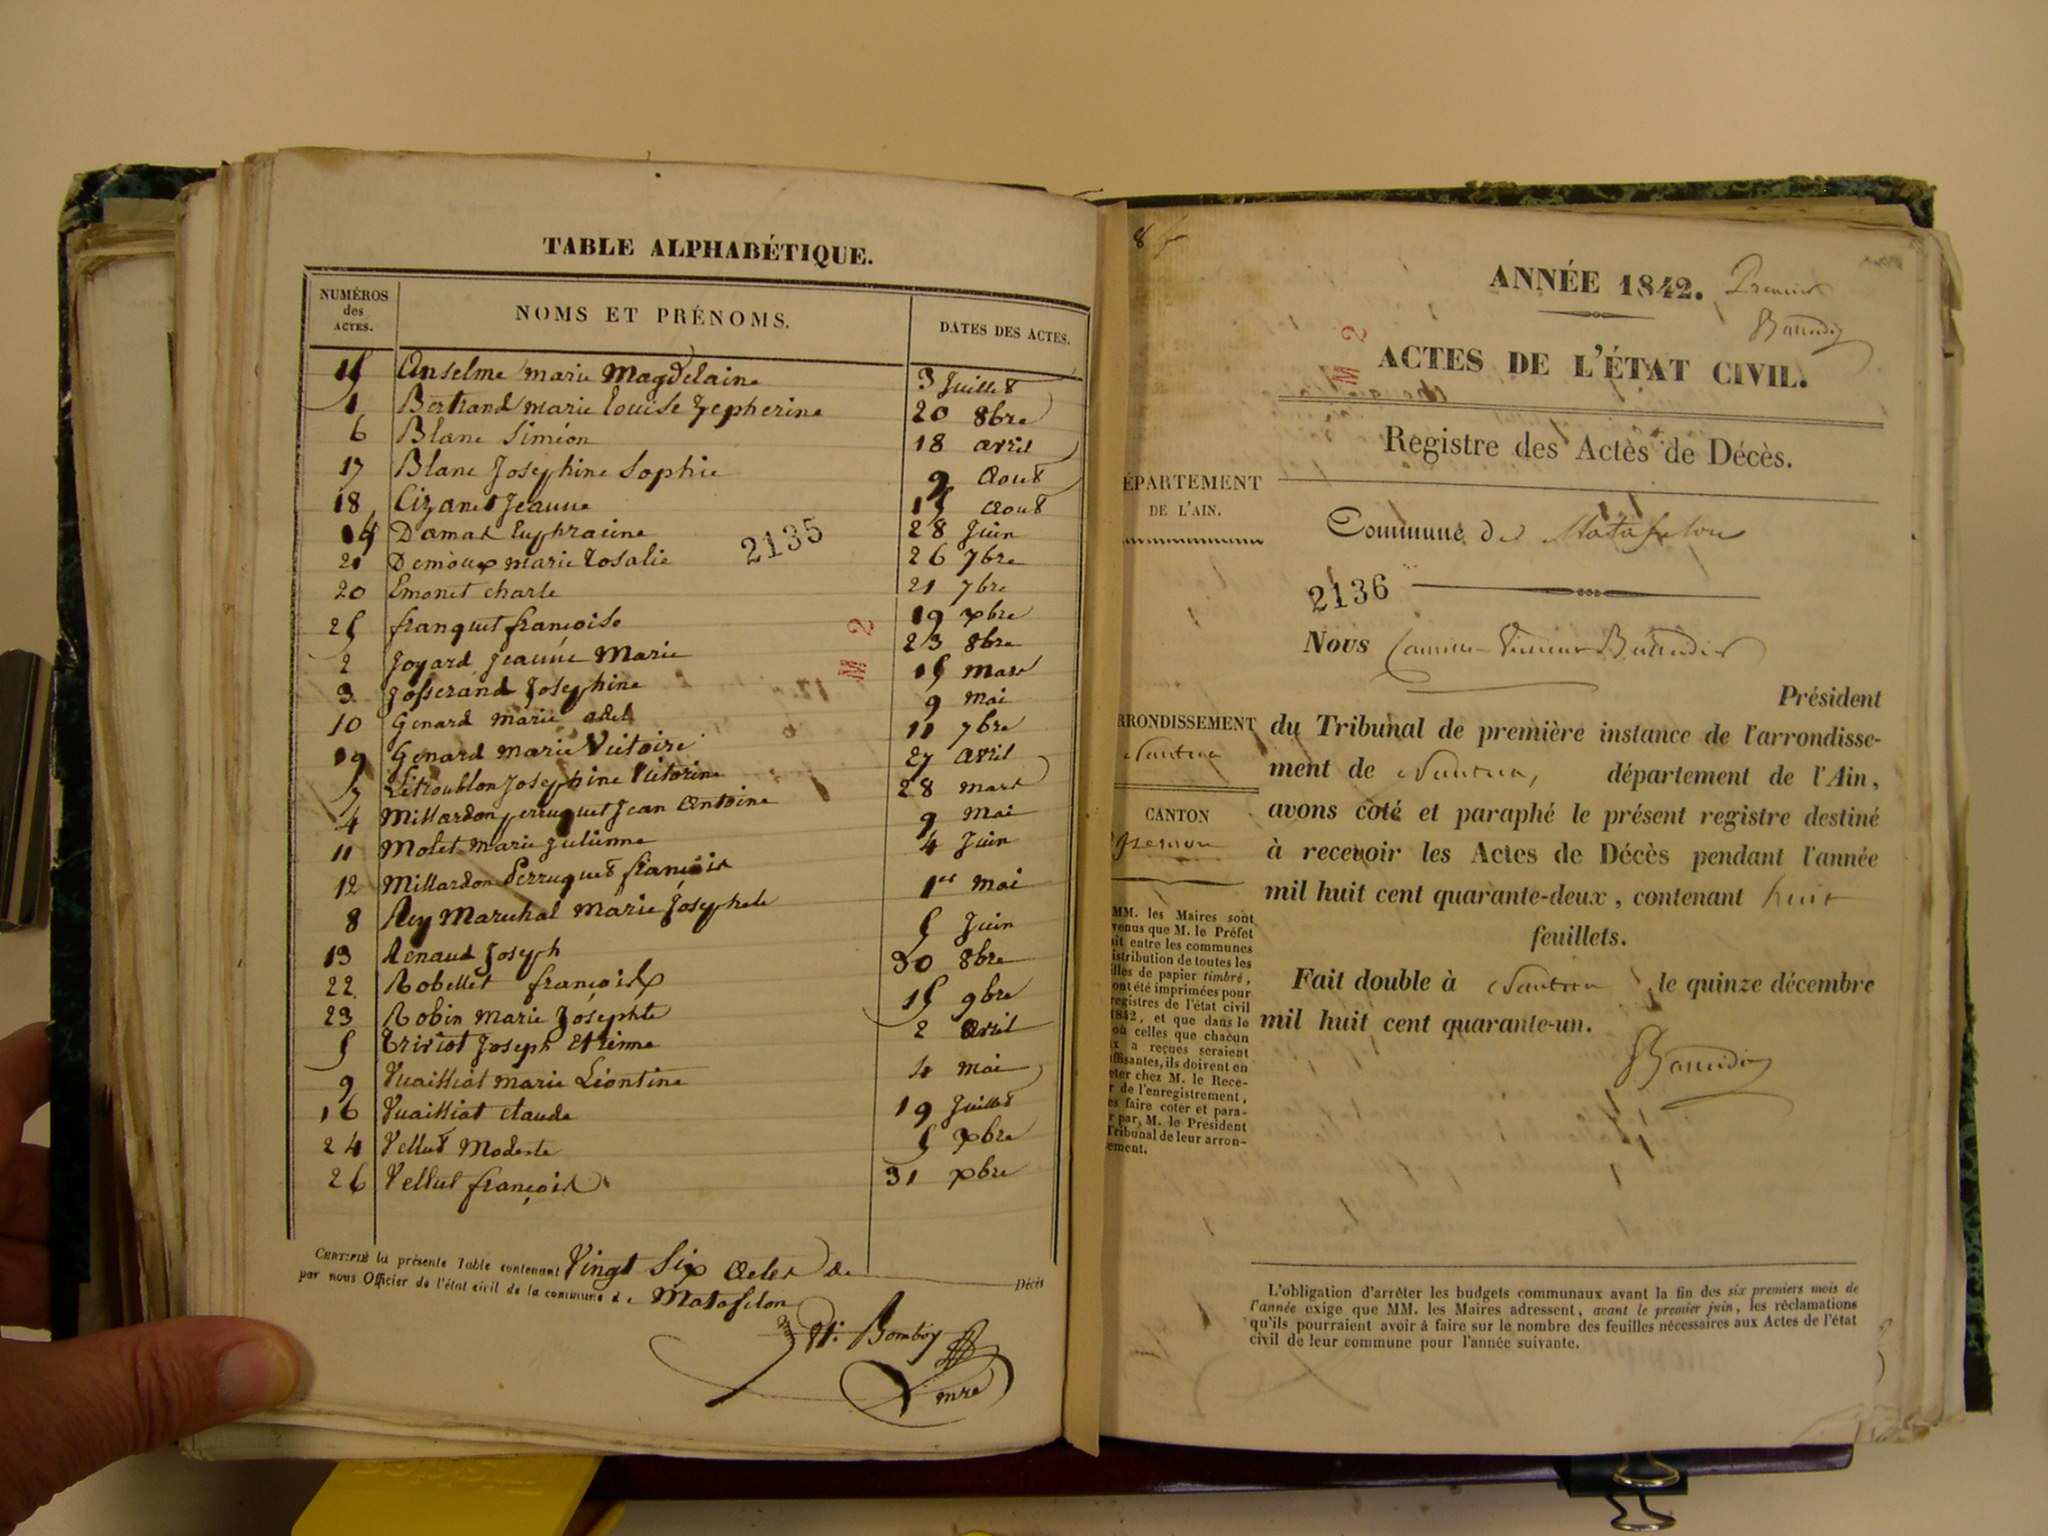 TABLE ALPHABÉTIQUE.
NUMÉROS des ACTES. NOMS ET PRÉNOMS. DATES DES ACTES.
15 Anselme marie Magdelaine 3 Juillet
1 Bertrand marie louise Zepherine 20
6 Blanc Siméon 18 avril
17 Blanc Josephine Sophie 9 Aout
18 Cizanet Jeanne 15 Aout
14 Damas Euphraine 28 Juin
21 Demoux marie rosalie 26 7bre
20 Emonet charle 21 7bre
25 franquet françoise 19 xbre
2 Joyard Jeanne Marie 23 8bre
3 Josserand Josephine 15 mars
10 Genard marie adel 9 mai
19 Genard marie Victoire 11 7bre
7 Létroublon Josephine Victorine 27 avril
4 Millardon perruquet Jean Antoine 28 mars
11 Molet marie julienne 9 Mai
12 Millardon Perruquet françois 4 Juin
8 Rey Marechal Marie Josephete 1er mai
13 Renaud Joseph 5 Juin
22 Robellet françois 30 8bre
23 Robin Marie Josephte 15 9bre
5 Triviot Joseph Etienne 2 avril
9 Vuailliat marie Léontine 4 mai
16 Vuailliat claude 19 Juillet
24 Vellut Modeste 5 xbre
26 Vellut françois 31 xbre
2135
M 2
CERTIFIÉ la présente Table contenant Vingt Six actes de Décès
par nous Officier de l'état civil de la commune de Matafelon
Bomboy
mre
8
ANNÉE 1842. Premier
M 2
ACTES DE L'ÉTAT CIVIL.
Registre des Actes de Décès.
ÉPARTEMENT
DE L'AIN.
Commune de Matafelon
2136
Nous Camille
Président
RRONDISSEMENT
Nantua
CANTON
du Tribunal de première instance de l'arrondisse-
ment de Nantua, département de l'Ain,
avons coté et paraphé le présent registre destiné
à recevoir les Actes de Décès pendant l'année
mil huit cent quarante-deux, contenant huit
feuillets.
Fait double à Nantua le quinze décembre
mil huit cent quarante-un.
MM. les Maires sont
venus que M. le Préfet
it entre les communes
istribution de toutes les
illes de papier timbré,
ont été imprimées pour
registres de l'état civil
1842, et que dans le
où celles que chacun
x a reçues seraient
ffisantes, ils doivent en
eter chez M. le Rece-
r de l'enregistrement,
es faire coter et para-
r par M. le Président
Tribunal de leur arron-
ement.
L'obligation d'arrêter les budgets communaux avant la fin des six premiers mois de
l'année exige que MM. les Maires adressent, avant le premier juin, les réclamations
qu'ils pourraient avoir à faire sur le nombre des feuilles nécessaires aux Actes de l'état
civil de leur commune pour l'année suivante.